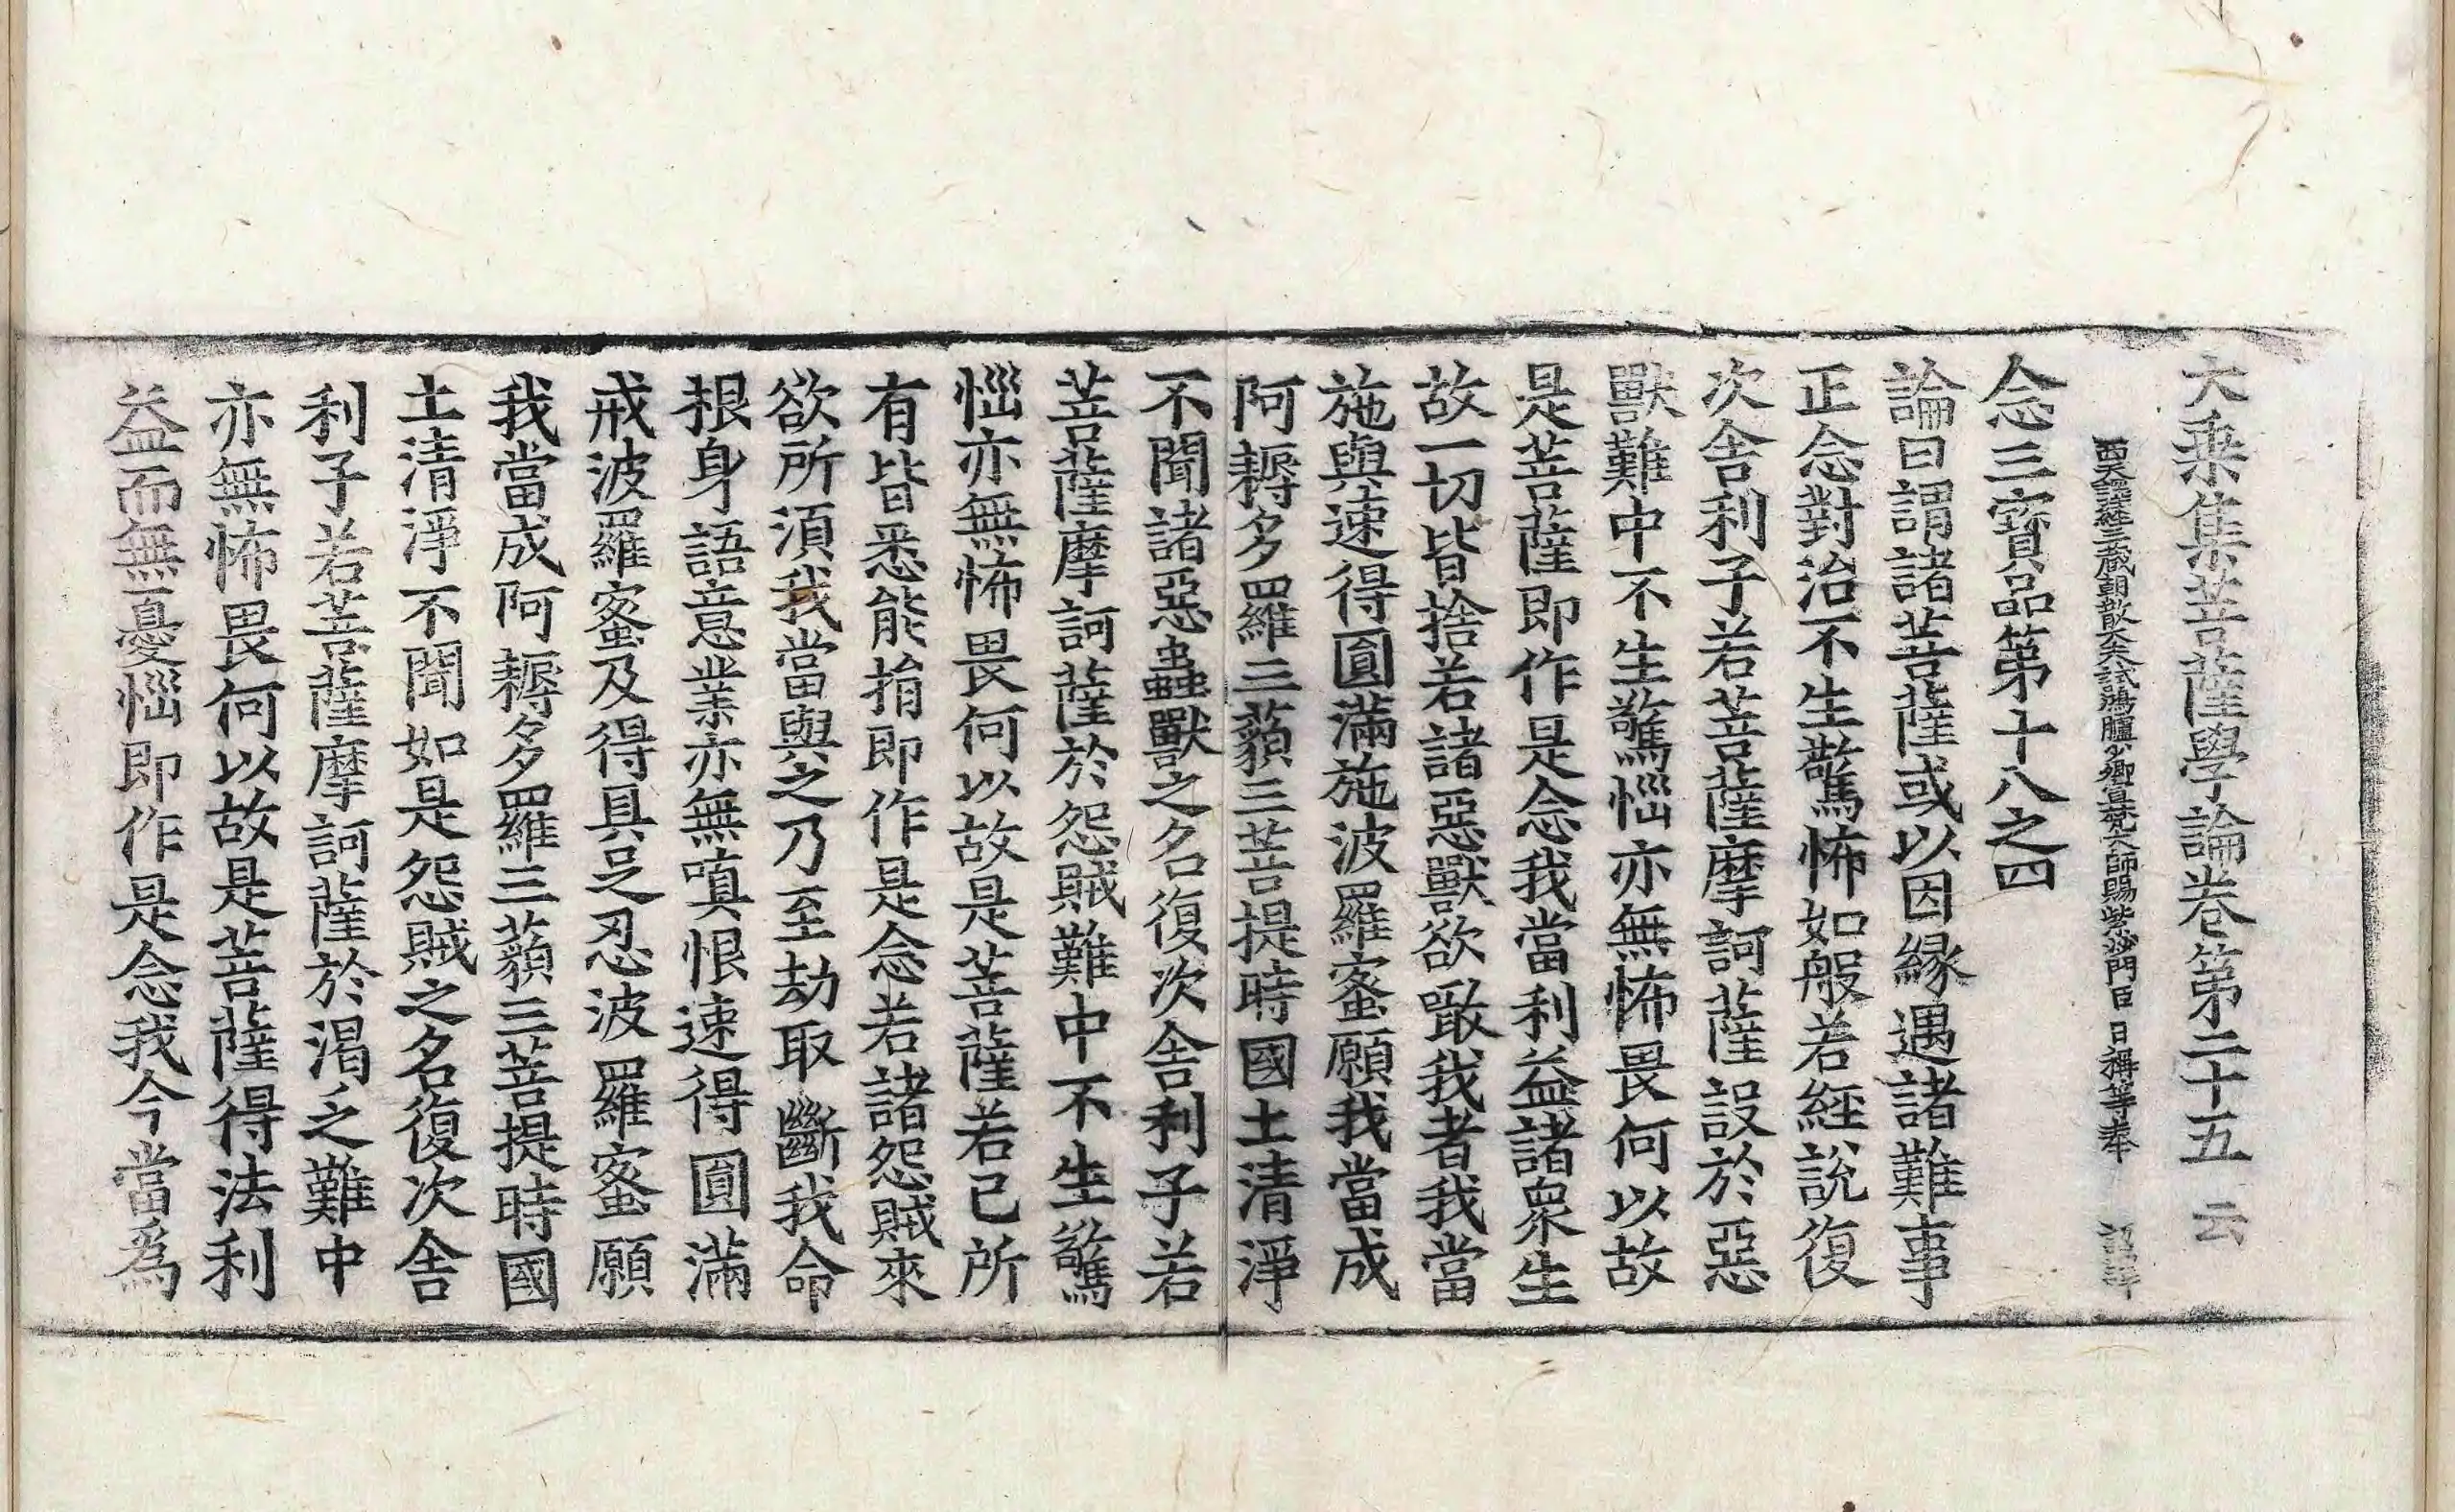 大乘集菩薩學論卷第二十五 云
西天譯經三藏朝散大夫試鴻臚少卿宣梵大師賜紫沙門臣 日稱等奉 詔譯
念三寶品第十八之四
論曰謂諸菩薩或以因緣遇諸難事
正念對治不生驚怖如般若經說復
次舍利子若菩薩摩訶薩設於惡
獸難中不生驚惱亦無怖畏何以故
是菩薩即作是念我當利益諸衆生
故一切皆捨若諸惡獸欲噉我者我當
施與速得圓滿施波羅蜜願我當成
阿耨多羅三藐三菩提時國土清淨
不聞諸惡蟲獸之名復次舍利子若
菩薩摩訶薩於怨賊難中不生驚
惱亦無怖畏何以故是菩薩若己所
有皆悉能捐即作是念若諸怨賊來
欲所須我當與之乃至劫取斷我命
根身語意業亦無嗔恨速得圓滿
戒波羅蜜及得具足忍波羅蜜願
我當成阿耨多羅三藐三菩提時國
土清淨不聞如是怨賊之名復次舍
利子若菩薩摩訶薩於渴乏難中
亦無怖畏何以故是菩薩得法利
益而無憂惱即作是念我今當爲